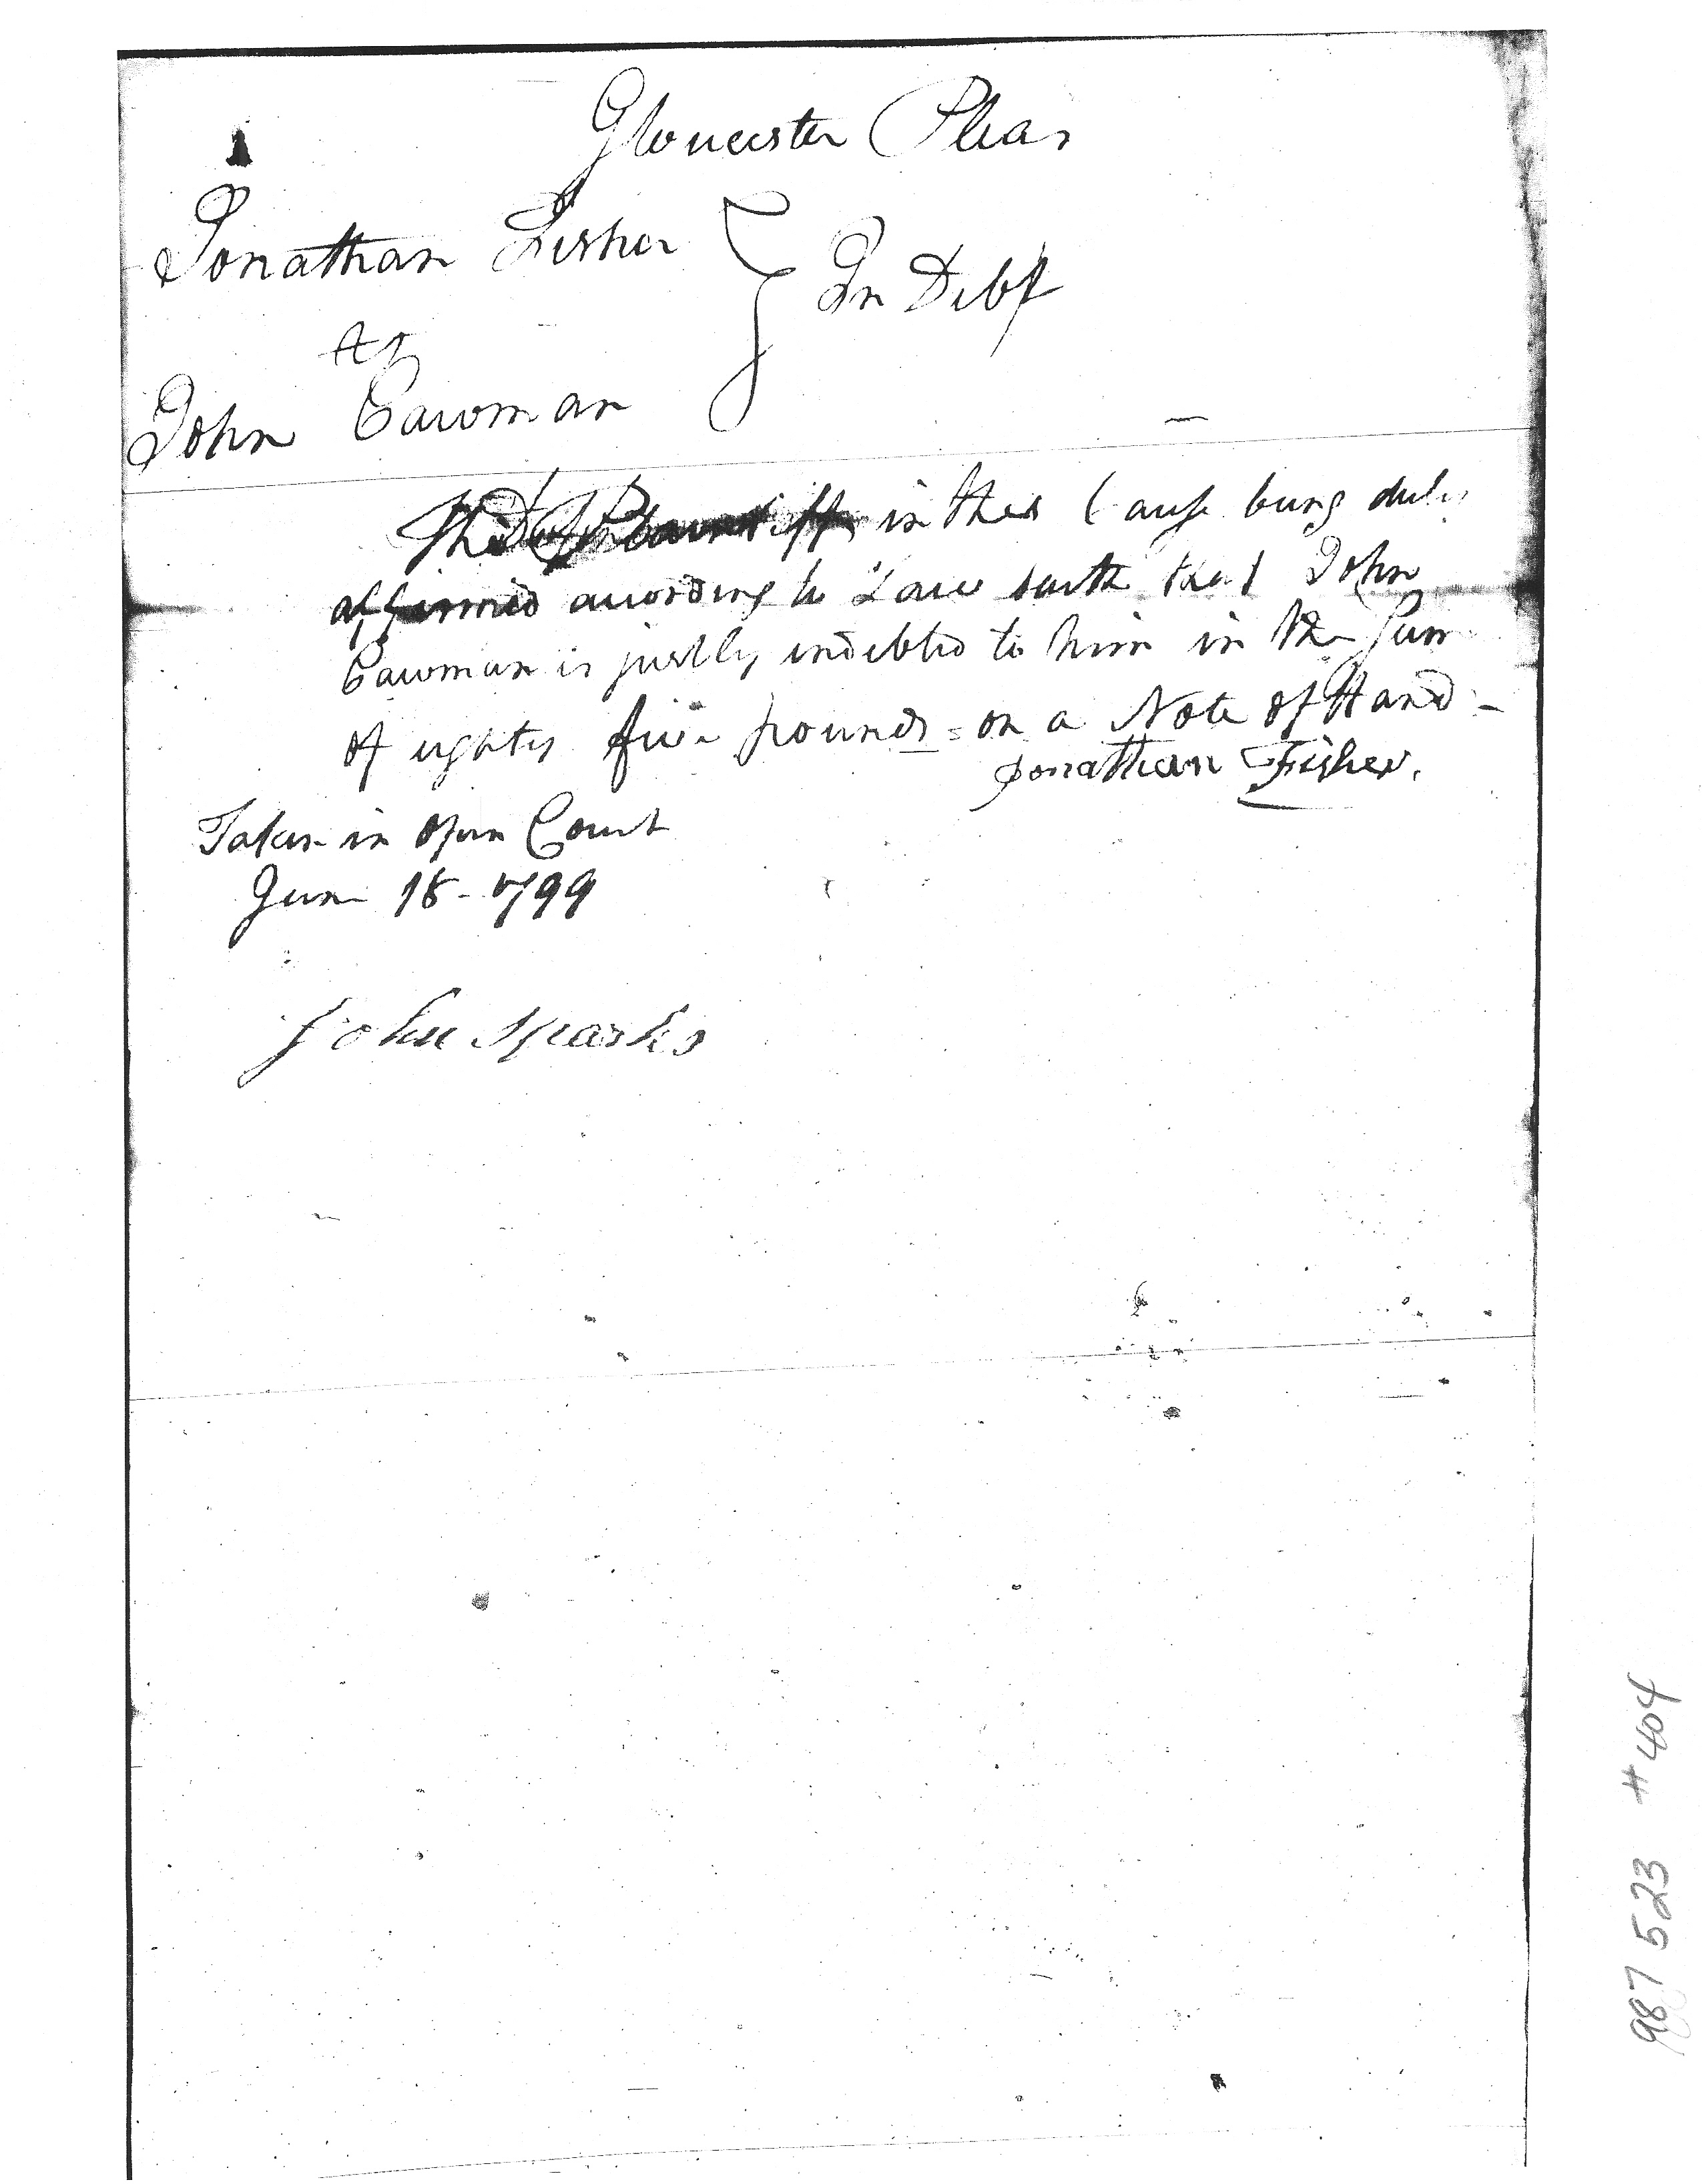 Gloucester Pleas
Jonathan Fisher
In Debt
John Cawman
The Plaintiff in this Cause being duly
affirmed according to Law saith that John
Cawman is justly indebted to him in the Sum
of eighty five pounds = on a Note of Hand -
Jonathan Fisher.
Taken in Open Court
June 18 - 1799
John Sparks
987 523 #404